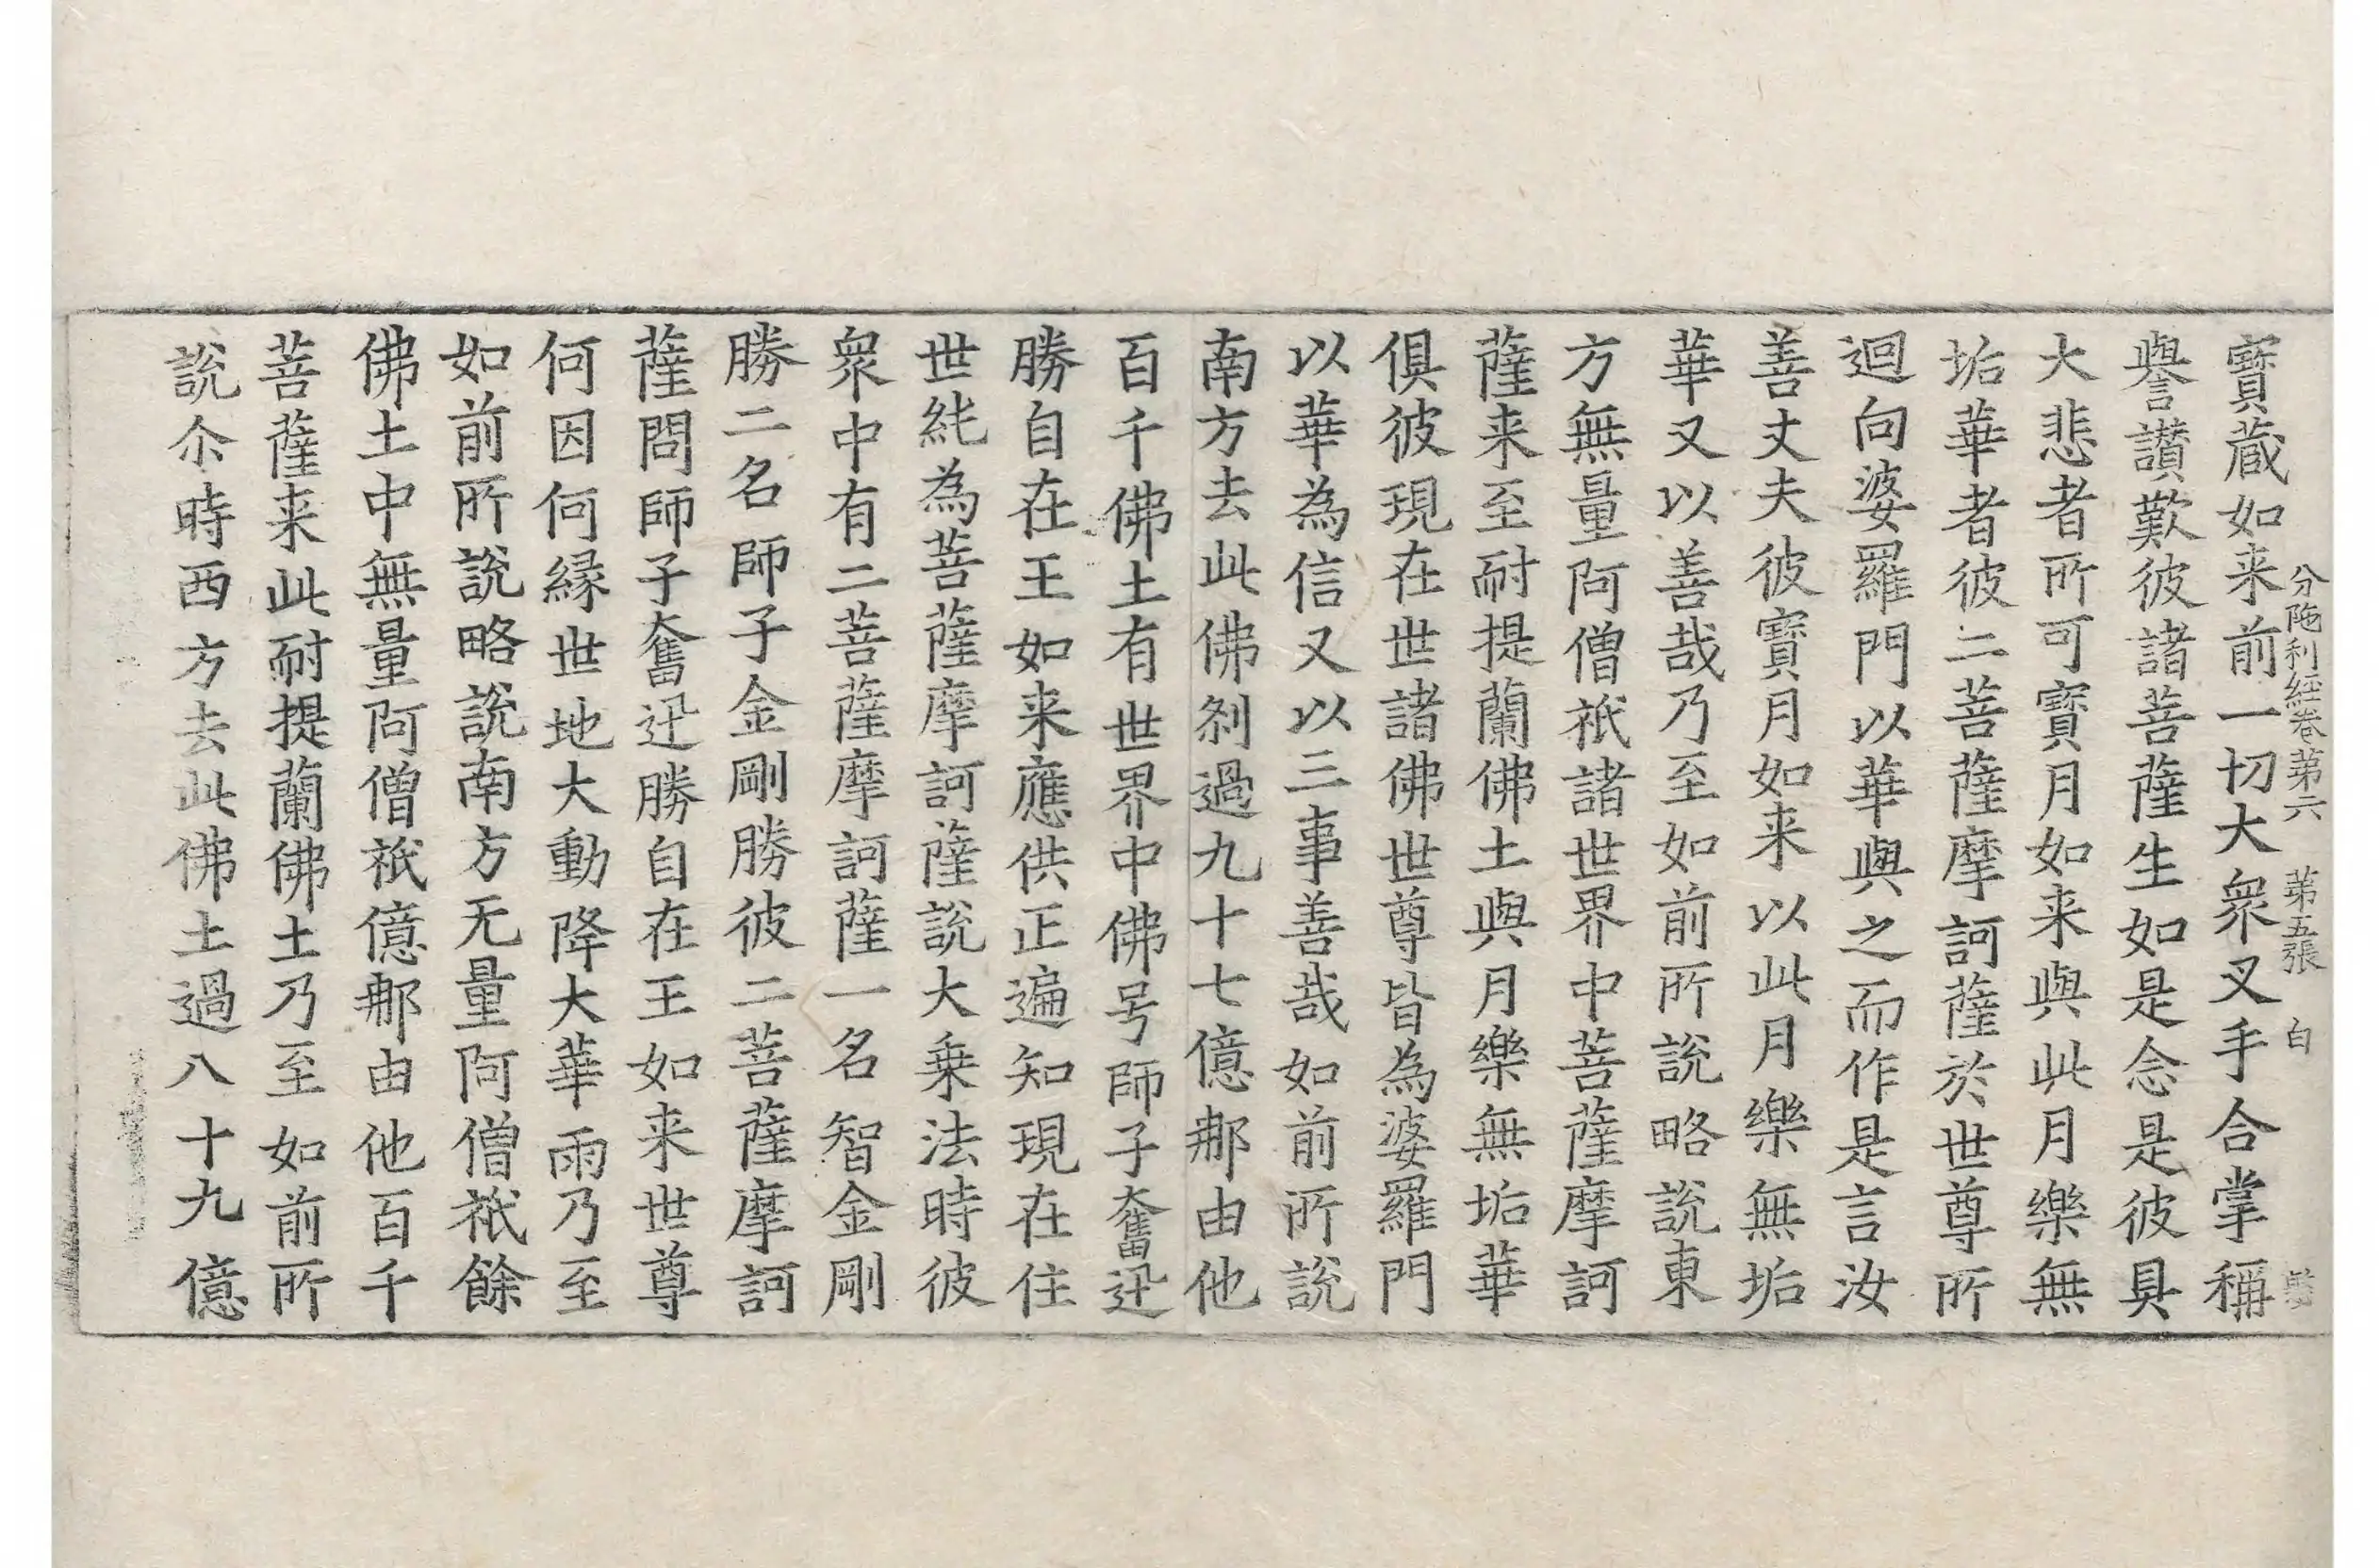 分陁利經卷第六 第五張 白
寶蔵如来前一切大衆叉手合掌稱
譽讃歎彼諸菩薩生如是念是彼具
大悲者所可寶月如来與此月樂無
垢華者彼二菩薩摩訶薩於世尊所
迴向婆羅門以華與之而作是言汝
善丈夫彼寶月如来以此月樂無垢
華又以善哉乃至如前所説略説東
方無量阿僧祇諸世界中菩薩摩訶
薩来至耐提蘭佛土與月樂無垢華
俱彼現在世諸佛世尊皆為婆羅門
以華為信又以三事善哉如前所説
南方去此佛刹過九十七億那由他
百千佛土有世界中佛号師子奮迅
勝自在王如来應供正遍知現在住
世純為菩薩摩訶薩説大乗法時彼
衆中有二菩薩摩訶薩一名智金剛
勝二名師子金剛勝彼二菩薩摩訶
薩問師子奮迅勝自在王如来世尊
何因何縁世地大動降大華雨乃至
如前所説略説南方无量阿僧祇餘
佛土中無量阿僧祇億那由他百千
菩薩来此耐提蘭佛土乃至如前所
説尒時西方去此佛土過八十九億